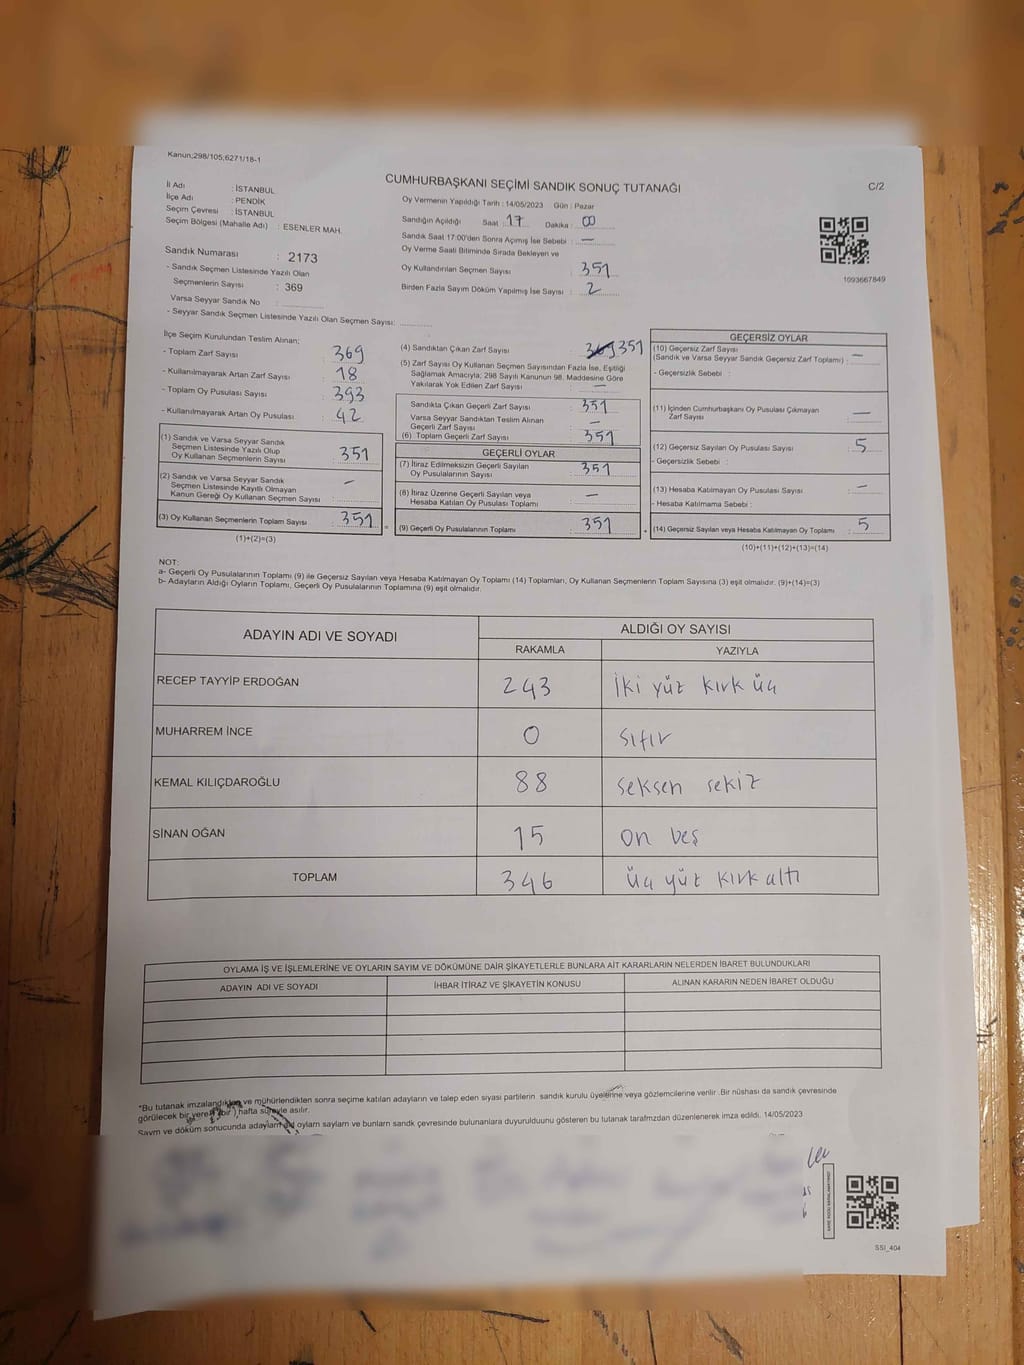 Kanun;298/105;6271/18-1
CUMHURBAŞKANI SEÇİMİ SANDIK SONUÇ TUTANAĞI
C/2
İl Adı : İSTANBUL
İlçe Adı : PENDİK
Seçim Çevresi : İSTANBUL
Seçim Bölgesi (Mahalle Adı) : ESENLER MAH.
Sandık Numarası : 2173
- Sandık Seçmen Listesinde Yazılı Olan
Seçmenlerin Sayısı : 369
Varsa Seyyar Sandık No :
- Seyyar Sandık Seçmen Listesinde Yazılı Olan Seçmen Sayısı:
Oy Vermenin Yapıldığı Tarih : 14/05/2023 Gün : Pazar
Sandığın Açıldığı Saat : 17 Dakika : 00
Sandık Saat 17:00'den Sonra Açımış İse Sebebi : —
Oy Verme Saati Bitiminde Sırada Bekleyen ve
Oy Kullandırılan Seçmen Sayısı : 351
Birden Fazla Sayım Döküm Yapılmış İse Sayısı : 2
1093667849
İlçe Seçim Kurulundan Teslim Alınan;
- Toplam Zarf Sayısı : 369
- Kullanılmayarak Artan Zarf Sayısı : 18
- Toplam Oy Pusulası Sayısı : 393
- Kullanılmayarak Artan Oy Pusulası : 42
(1) Sandık ve Varsa Seyyar Sandık
Seçmen Listesinde Yazılı Olup
Oy Kullanan Seçmenlerin Sayısı : 351
(2) Sandık ve Varsa Seyyar Sandık
Seçmen Listesinde Kayıtlı Olmayan
Kanun Gereği Oy Kullanan Seçmen Sayısı : —
(3) Oy Kullanan Seçmenlerin Toplam Sayısı : 351
(1)+(2)=(3)
(4) Sandıktan Çıkan Zarf Sayısı : 369 351
(5) Zarf Sayısı Oy Kullanan Seçmen Sayısından Fazla İse, Eşitliği
Sağlamak Amacıyla; 298 Sayılı Kanunun 98. Maddesine Göre
Yakılarak Yok Edilen Zarf Sayısı : —
Sandıkta Çıkan Geçerli Zarf Sayısı : 351
Varsa Seyyar Sandıktan Teslim Alınan
Geçerli Zarf Sayısı : —
(6) Toplam Geçerli Zarf Sayısı : 351
GEÇERLİ OYLAR
(7) İtiraz Edilmeksizin Geçerli Sayılan
Oy Pusulalarının Sayısı : 351
(8) İtiraz Üzerine Geçerli Sayılan veya
Hesaba Katılan Oy Pusulası Toplamı : —
(9) Geçerli Oy Pusulalarının Toplamı : 351
GEÇERSİZ OYLAR
(10) Geçersiz Zarf Sayısı
(Sandık ve Varsa Seyyar Sandık Geçersiz Zarf Toplamı) : —
- Geçersizlik Sebebi :
(11) İçinden Cumhurbaşkanı Oy Pusulası Çıkmayan
Zarf Sayısı : —
(12) Geçersiz Sayılan Oy Pusulası Sayısı : 5
- Geçersizlik Sebebi :
(13) Hesaba Katılmayan Oy Pusulası Sayısı : —
- Hesaba Katılmama Sebebi :
(14) Geçersiz Sayılan veya Hesaba Katılmayan Oy Toplamı : 5
(10)+(11)+(12)+(13)=(14)
NOT:
a- Geçerli Oy Pusulalarının Toplamı (9) ile Geçersiz Sayılan veya Hesaba Katılmayan Oy Toplamı (14) Toplamları, Oy Kullanan Seçmenlerin Toplam Sayısına (3) eşit olmalıdır. (9)+(14)=(3)
b- Adayların Aldığı Oyların Toplamı, Geçerli Oy Pusulalarının Toplamına (9) eşit olmalıdır.
ADAYIN ADI VE SOYADI ALDIĞI OY SAYISI
RAKAMLA YAZIYLA
RECEP TAYYİP ERDOĞAN 243 İki yüz kırk üç
MUHARREM İNCE 0 sıfır
KEMAL KILIÇDAROĞLU 88 seksen sekiz
SİNAN OĞAN 15 on beş
TOPLAM 346 üç yüz kırk altı
OYLAMA İŞ VE İŞLEMLERİNE VE OYLARIN SAYIM VE DÖKÜMÜNE DAİR ŞİKAYETLERLE BUNLARA AİT KARARLARIN NELERDEN İBARET BULUNDUKLARI
ADAYIN ADI VE SOYADI İHBAR İTİRAZ VE ŞİKAYETİN KONUSU ALINAN KARARIN NEDEN İBARET OLDUĞU
*Bu tutanak imzalandıktan ve mühürlendikten sonra seçime katılan adayların ve talep eden siyasi partilerin sandık kurulu üyelerine veya gözlemcilerine verilir .Bir nüshası da sandık çevresinde
görülecek bir yere (bir) hafta süreyle asılır.
Sayım ve döküm sonucunda adayların oyların sayların ve bunların sandık çevresinde bulunanlara duyurulduunu gösteren bu tutanak tarafımzdan düzenlenerek imza edildi. 14/05/2023
SSI_404